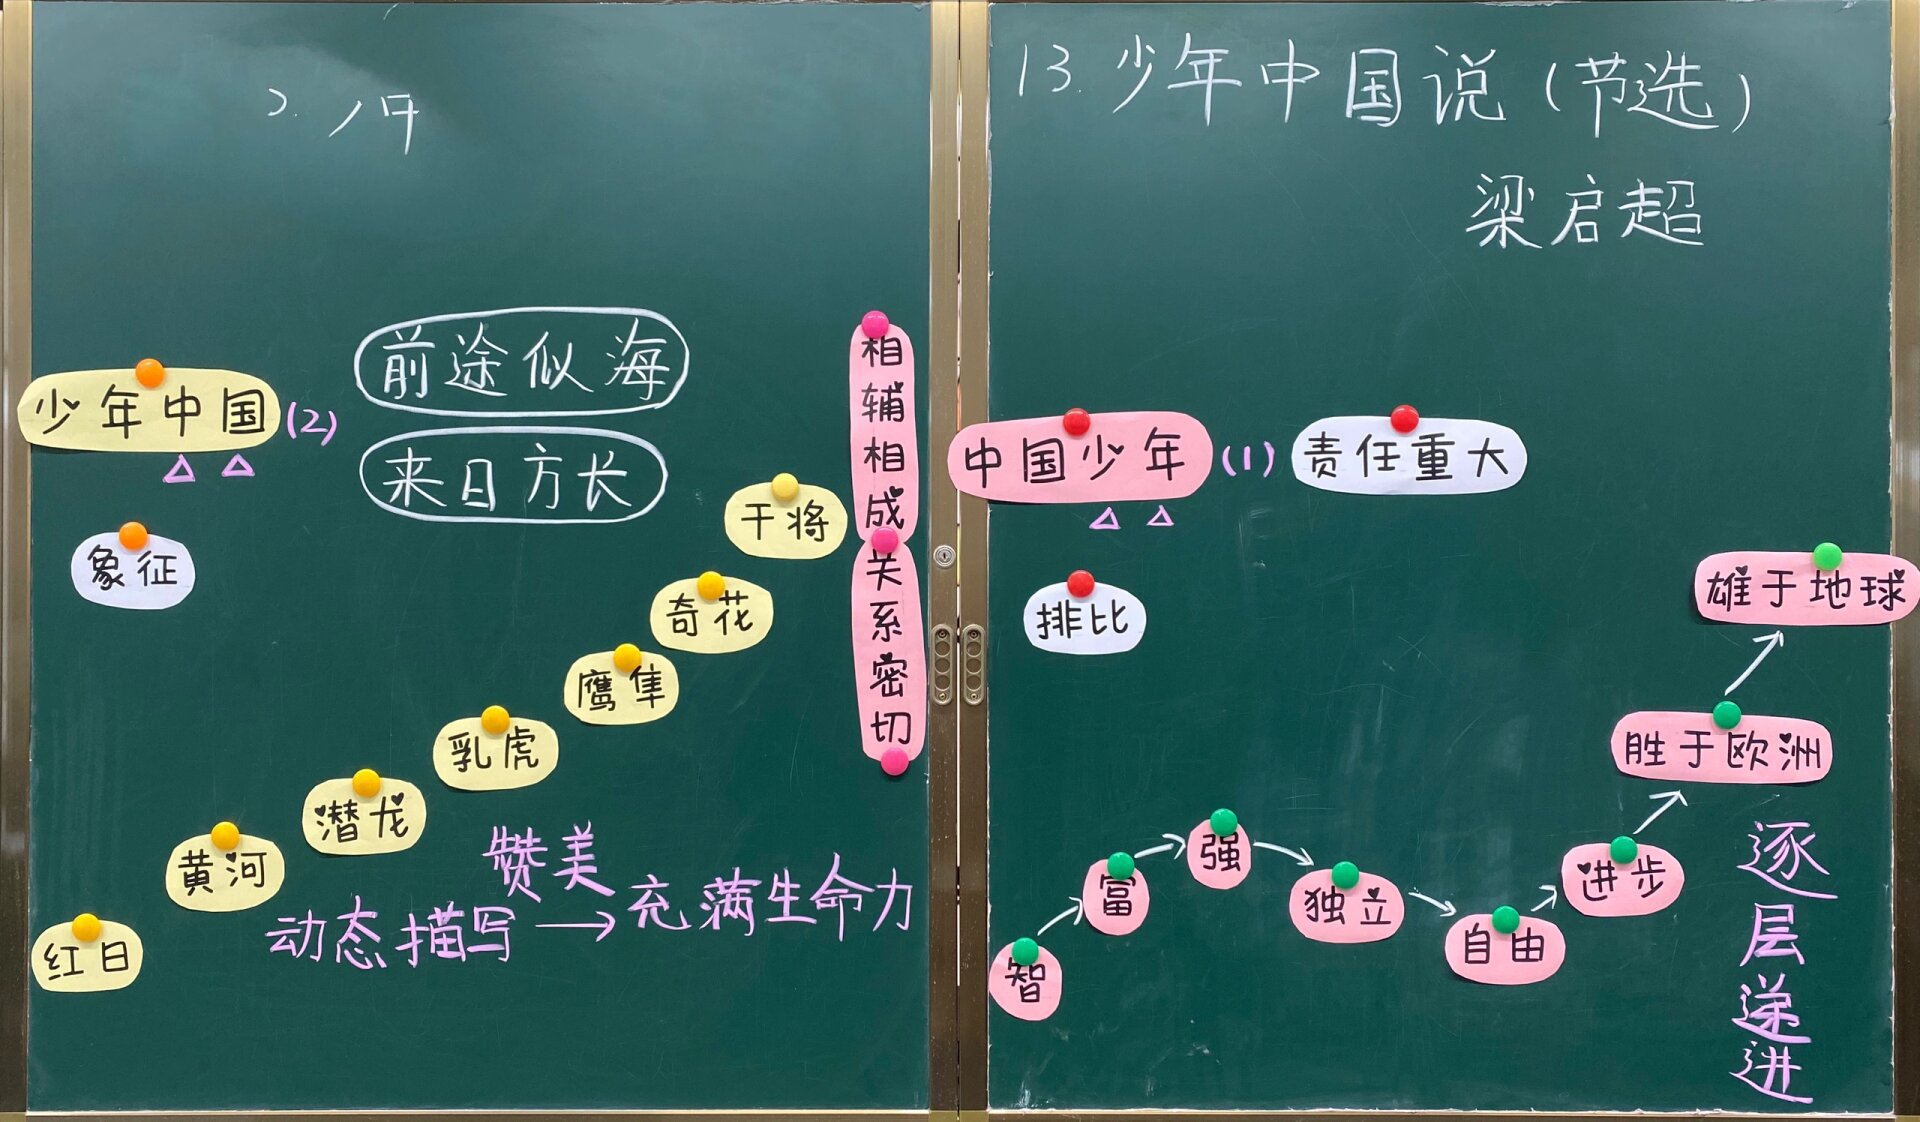 13.少年中国说(节选)
梁启超
少年中国(2)
前途似海
来日方长
象征
红日
黄河
潜龙
乳虎
鹰隼
奇花
干将
赞美
动态描写→充满生命力
相辅相成
关系密切
中国少年(1)
责任重大
排比
智
富
强
独立
自由
进步
胜于欧洲
雄于地球
逐层递进